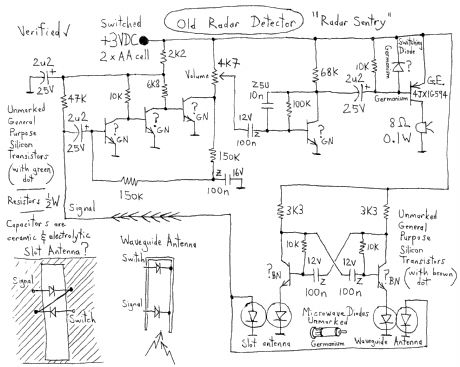 Old Radar Detector
"Radar Sentry"
Verified √
Switched
+3VDC
2 x AA cell
2u2
25V
2K2
4K7
Volume
6K8
10K
47K
2u2
25V
?
GN
?
GN
?
GN
150K
150K
16V
Z
100n
Z5U
10n
12V
Z
100n
100K
68K
?
GN
2u2
25V
10K
Germanium
Switching
Diode
?
Germanium
G.E.
4JX1G594
8Ω
0.1W
Unmarked
General
Purpose
Silicon
Transistors
(with green
dot)
Resistors ½W
Capacitors are
ceramic & electrolytic
Signal
Slot Antenna?
Signal
Switch
Waveguide Antenna
Switch
Signal
3K3
3K3
10K
10K
12V
Z
100n
12V
Z
100n
?
BN
?
BN
Unmarked
General
Purpose
Silicon
Transistors
(with brown
dot)
Slot antenna
Microwave Diodes
Unmarked
Germanium
Waveguide Antenna